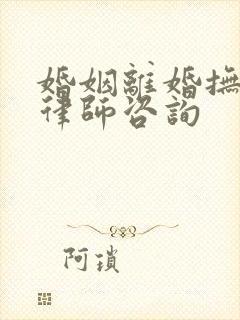 婚姻離婚撫
律師咨詢
阿瑣